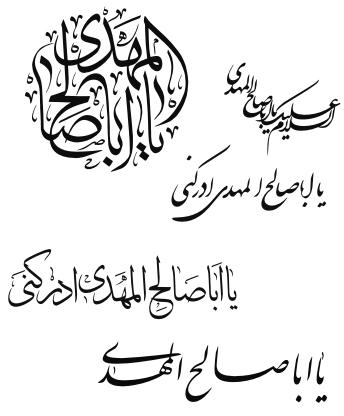 یا اباصالح المهدی
السلام علیک یا اباصالح المهدی
یا اباصالح المهدی ادرکنی
یَا اَبَا صَالِحِ الْمَهْدی ادرکنی
یا ابا صالح المهدی